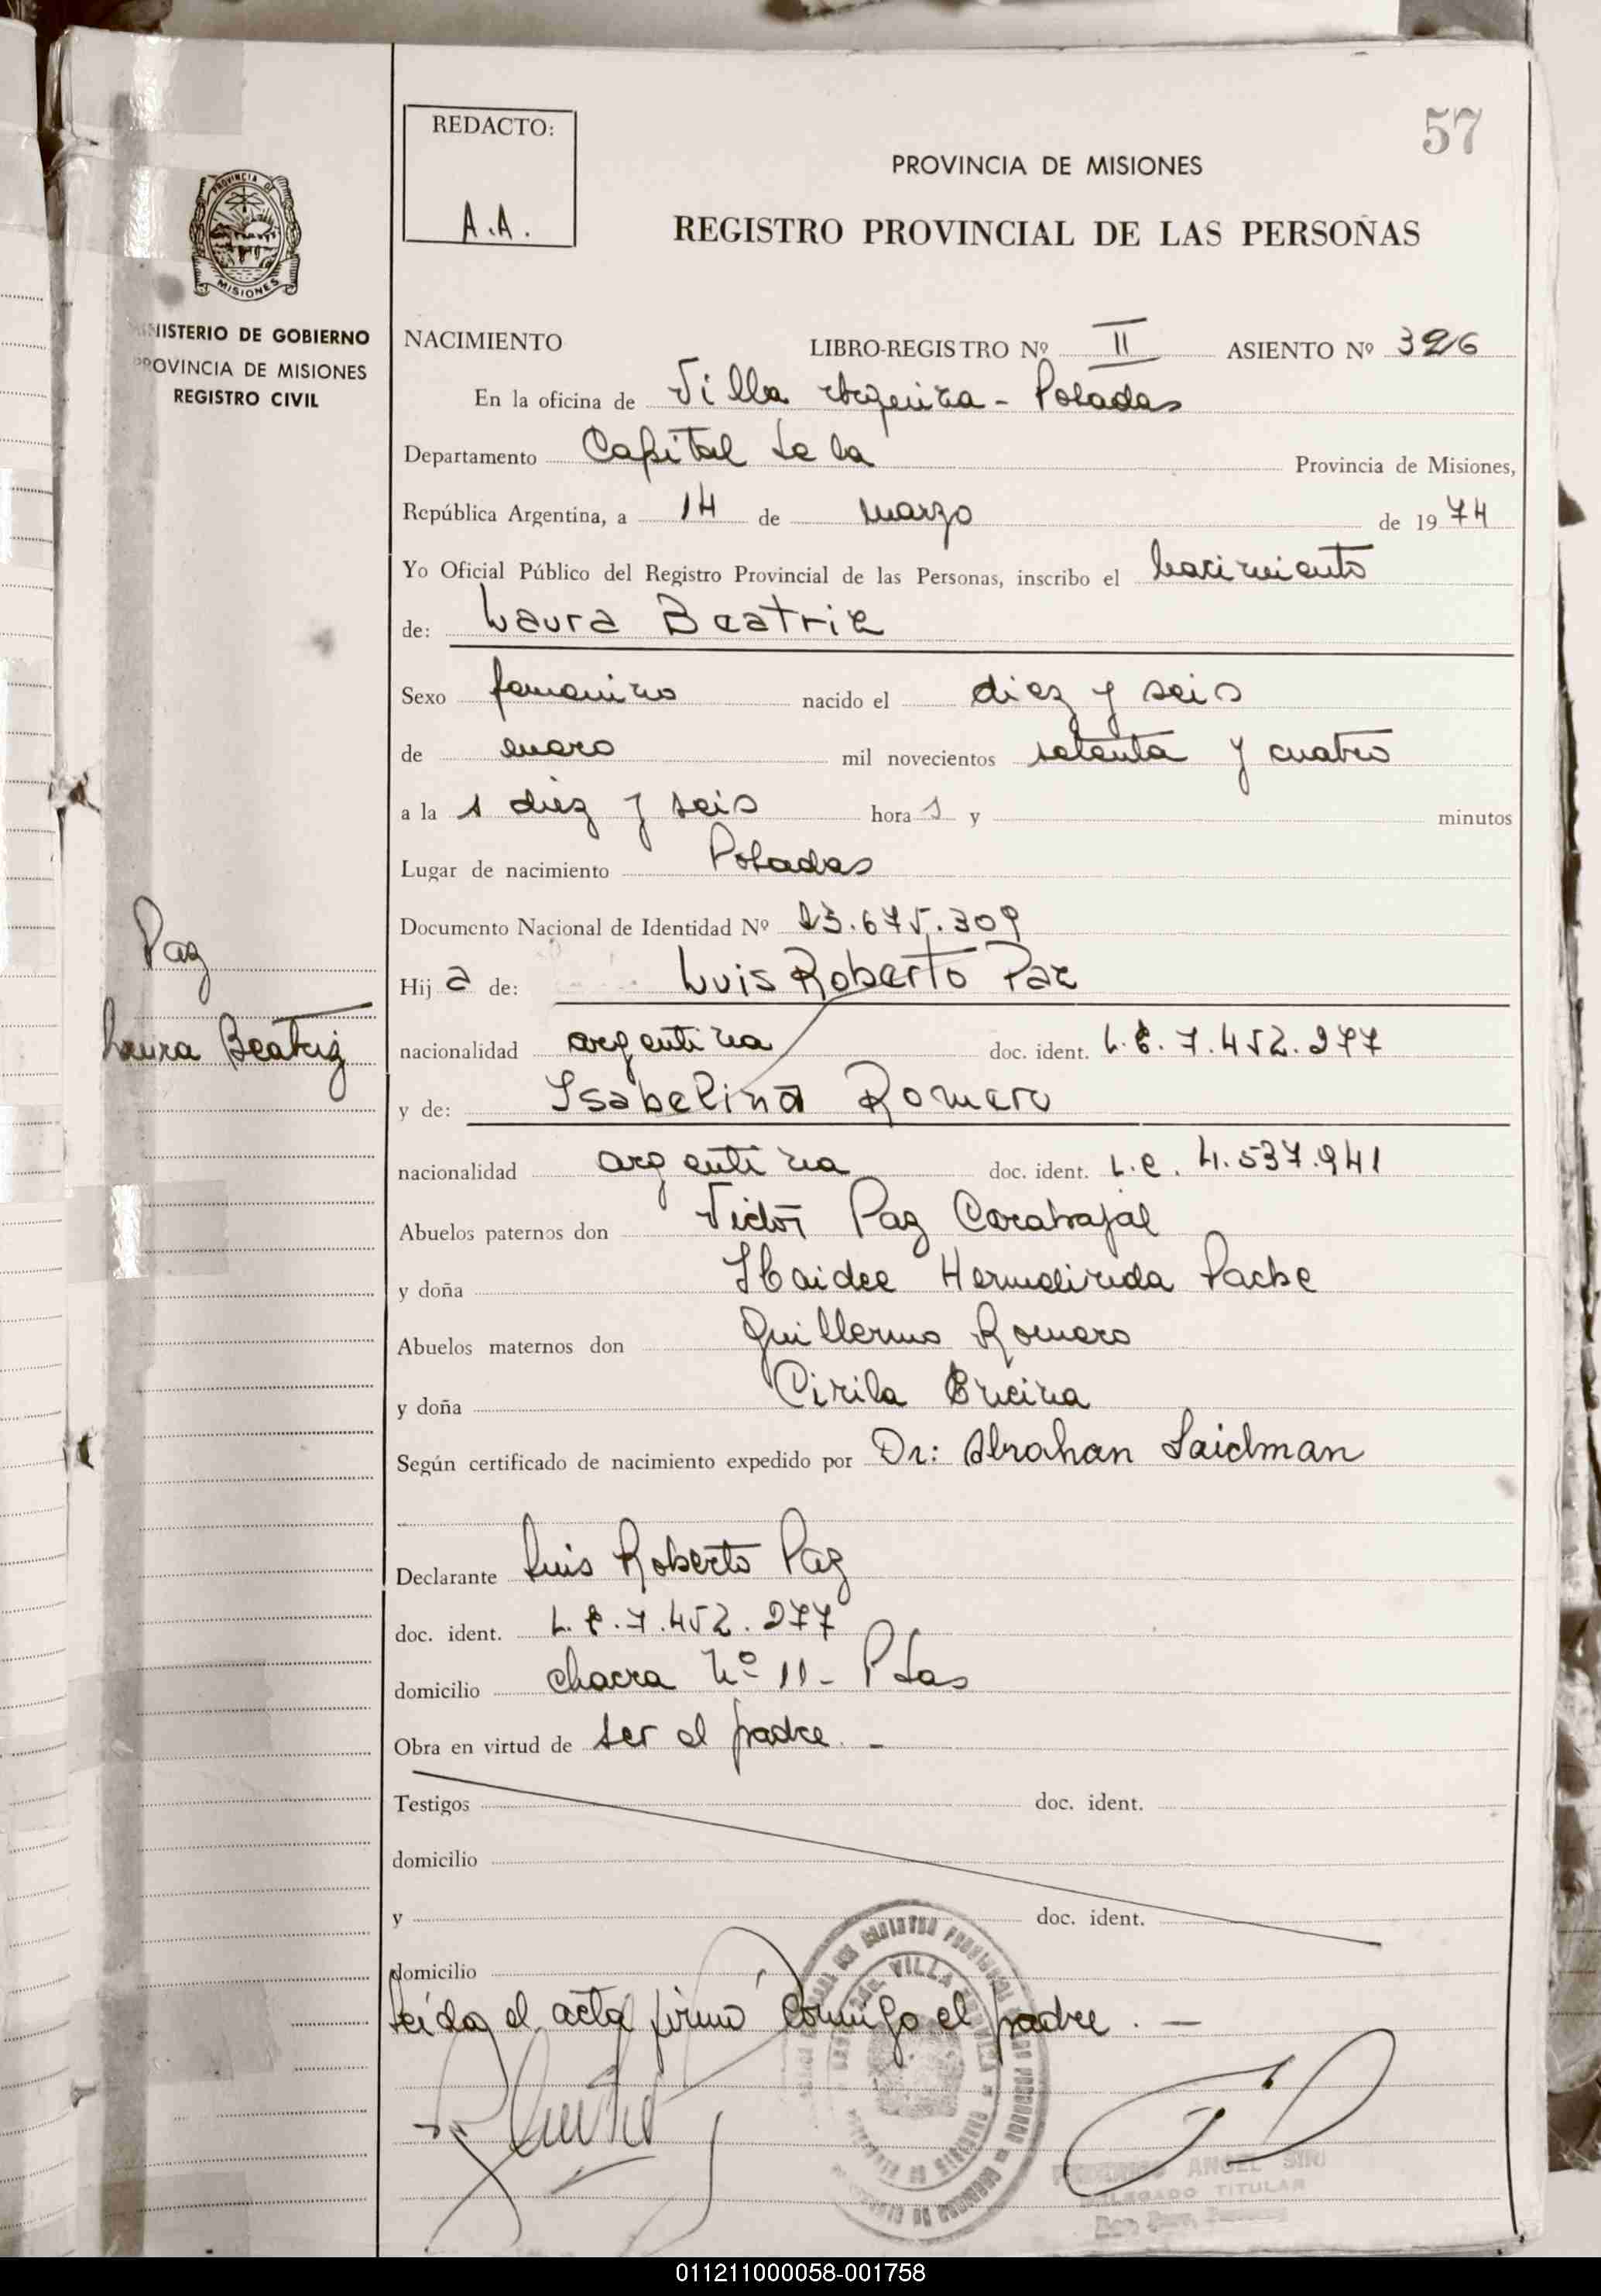 57
REDACTO:
A.A.
PROVINCIA DE MISIONES
REGISTRO PROVINCIAL DE LAS PERSONAS
PROVINCIA DE
MISIONES
MINISTERIO DE GOBIERNO
PROVINCIA DE MISIONES
REGISTRO CIVIL
Paz
Laura Beatriz
NACIMIENTO LIBRO-REGISTRO Nº II ASIENTO Nº 326
En la oficina de Villa - Posadas
Departamento Capital de la Provincia de Misiones,
República Argentina, a 14 de marzo de 1974
Yo Oficial Público del Registro Provincial de las Personas, inscribo el nacimiento
de: Laura Beatriz
Sexo femenino nacido el diez y seis
de enero mil novecientos setenta y cuatro
a la s diez y seis hora s y minutos
Lugar de nacimiento Posadas
Documento Nacional de Identidad Nº 23.675.309
Hij a de: Luis Roberto Paz
nacionalidad argentina doc. ident. L.E. 7.452.277
y de: Isabelina Romero
nacionalidad argentina doc. ident. L.C. 4.537.941
Abuelos paternos don Victor Paz Carabajal
y doña Haidee Hermelinda
Abuelos maternos don Guillermo Romero
y doña Cirila Encina
Según certificado de nacimiento expedido por Dr: Abrahan Saidman
Declarante Luis Roberto Paz
doc. ident. L.E. 7.452.277
domicilio chacra Nº 11 - Pdas
Obra en virtud de ser el padre. -
Testigos doc. ident.
domicilio
y doc. ident.
domicilio
Leída el acta firmó conmigo el padre. -
ANGEL
DELEGADO TITULAR
011211000058-001758